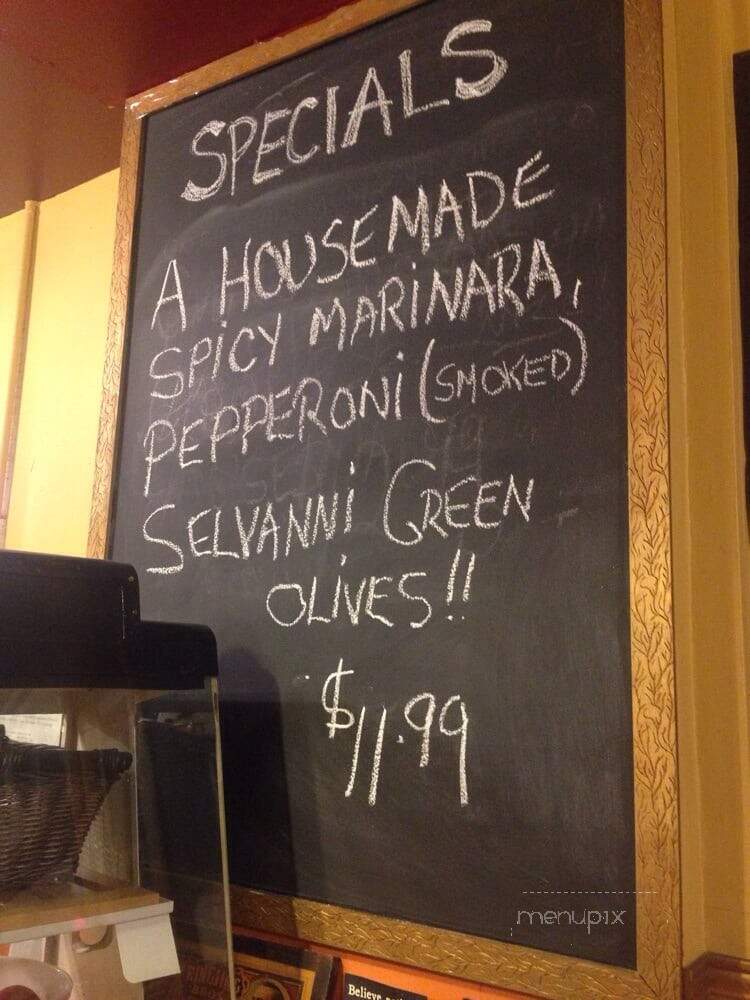 SPECIALS
A HOUSEMADE
SPICY MARINARA,
PEPPERONI (SMOKED)
SELVANNI GREEN
OLIVES!!
$11.99
menupix
Believe